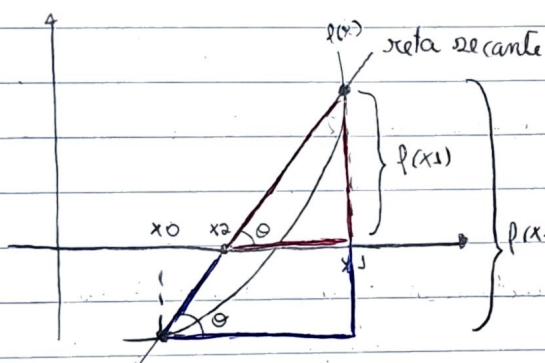 f(x)
reta secante
f(x1)
x0 x2 θ
f(x
x1
θ